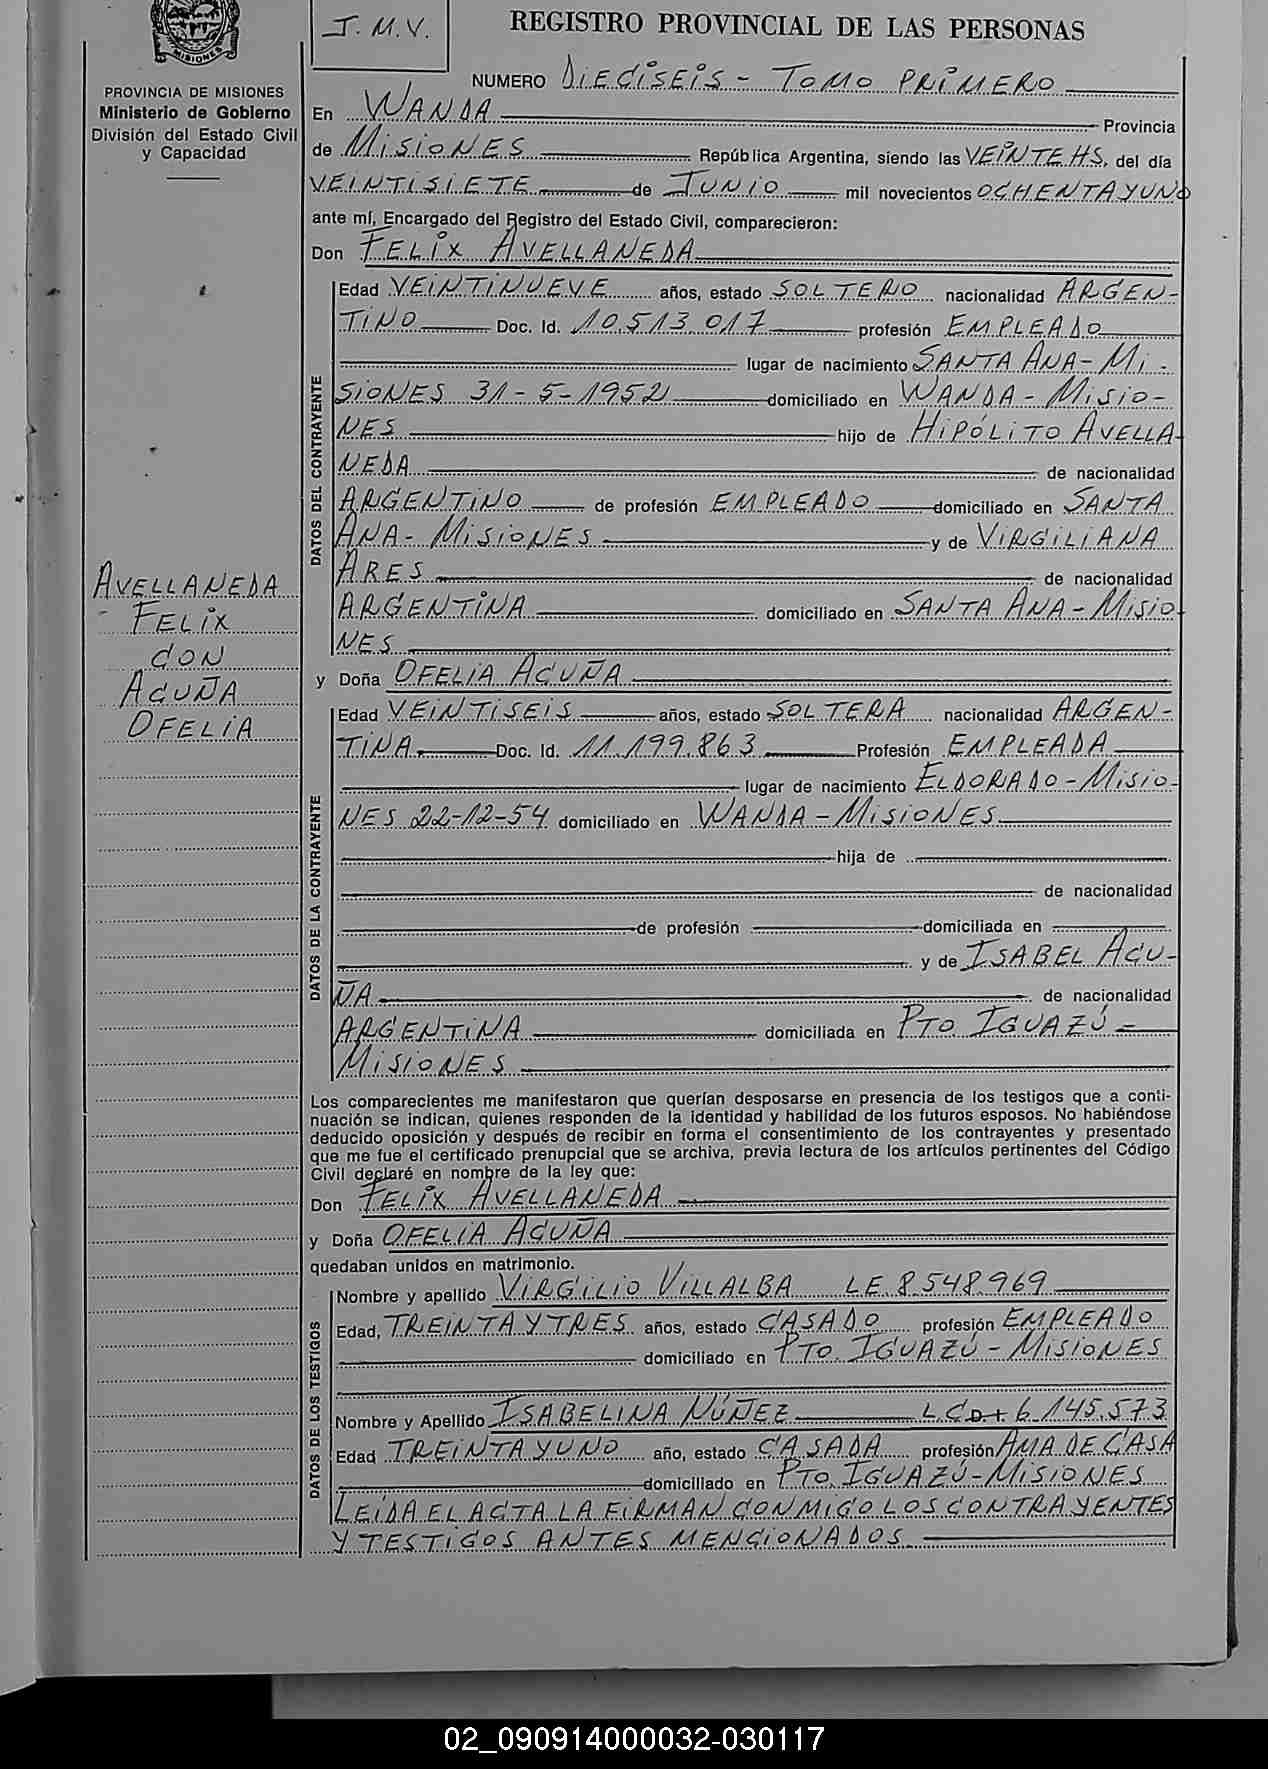 MISIONES
J. M. V.
REGISTRO PROVINCIAL DE LAS PERSONAS
PROVINCIA DE MISIONES
Ministerio de Gobierno
División del Estado Civil
y Capacidad
NUMERO DIECISEIS - TOMO PRIMERO
En WANDA Provincia
de MISIONES República Argentina, siendo las VEINTE HS. del día
VEINTISIETE de JUNIO mil novecientos OCHENTA Y UNO
ante mí, Encargado del Registro del Estado Civil, comparecieron:
Don FELIX AVELLANEDA
DATOS DEL CONTRAYENTE
Edad VEINTINUEVE años, estado SOLTERO nacionalidad ARGEN-
TINO Doc. Id. 10.513.017 profesión EMPLEADO
lugar de nacimiento SANTA ANA - MI-
SIONES 31-5-1952 domiciliado en WANDA - MISIO-
NES hijo de HIPÓLITO AVELLA-
NEDA de nacionalidad
ARGENTINO de profesión EMPLEADO domiciliado en SANTA
ANA - MISIONES y de VIRGILIANA
ARES de nacionalidad
ARGENTINA domiciliado en SANTA ANA - MISIO-
NES
AVELLANEDA
FELIX
CON
ACUÑA
OFELIA
y Doña OFELIA ACUÑA
DATOS DE LA CONTRAYENTE
Edad VEINTISEIS años, estado SOLTERA nacionalidad ARGEN-
TINA Doc. Id. 11.199.863 Profesión EMPLEADA
lugar de nacimiento ELDORADO - MISIO-
NES 22-12-54 domiciliado en WANDA - MISIONES
hija de
de nacionalidad
de profesión domiciliada en
y de ISABEL ACU-
ÑA de nacionalidad
ARGENTINA domiciliada en PTO. IGUAZÚ -
MISIONES
Los comparecientes me manifestaron que querían desposarse en presencia de los testigos que a conti-
nuación se indican, quienes responden de la identidad y habilidad de los futuros esposos. No habiéndose
deducido oposición y después de recibir en forma el consentimiento de los contrayentes y presentado
que me fue el certificado prenupcial que se archiva, previa lectura de los artículos pertinentes del Código
Civil declaré en nombre de la ley que:
Don FELIX AVELLANEDA
y Doña OFELIA ACUÑA
quedaban unidos en matrimonio.
DATOS DE LOS TESTIGOS
Nombre y apellido VIRGILIO VILLALBA L.E. 8.548.969
Edad, TREINTA Y TRES años, estado CASADO profesión EMPLEADO
domiciliado en PTO. IGUAZÚ - MISIONES
Nombre y Apellido ISABELINA NÚÑEZ L.C. D.I. 6.145.573
Edad TREINTA Y UNO año, estado CASADA profesión AMA DE CASA
domiciliado en PTO. IGUAZÚ - MISIONES
LEÍDA EL ACTA LA FIRMAN CONMIGO LOS CONTRAYENTES
Y TESTIGOS ANTES MENCIONADOS.
02_090914000032-030117